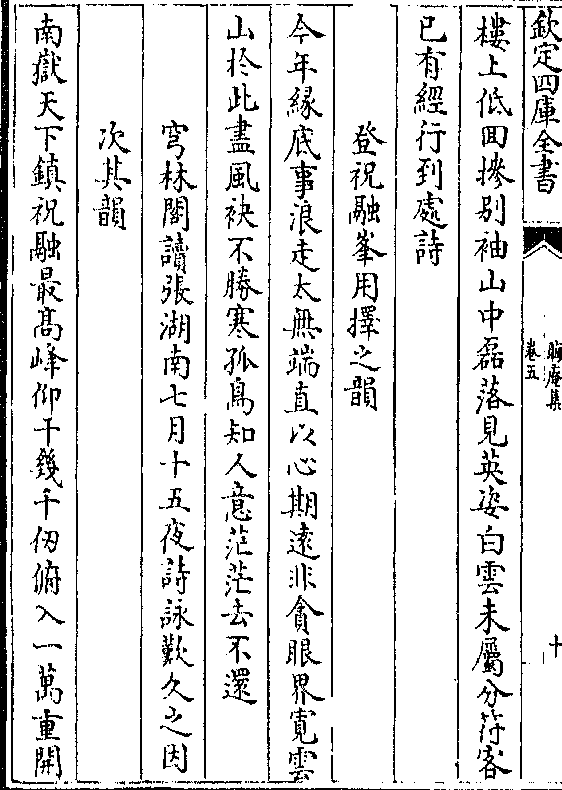 欽定四庫全書
晦庵集
卷五
十
樓上低回摻别袖山中磊落見英姿白雲未屬分符客
已有經行到處詩
登祝融峯用擇之韻
今年緣底事浪走太無端直以心期遠非貪眼界寛雲
山於此盡風袂不勝寒孤鳥知人意茫茫去不還
穹林閣讀張湖南七月十五夜詩詠歎久之因
次其韻
南嶽天下鎮祝融最髙峰仰干幾千仞俯入一萬重開